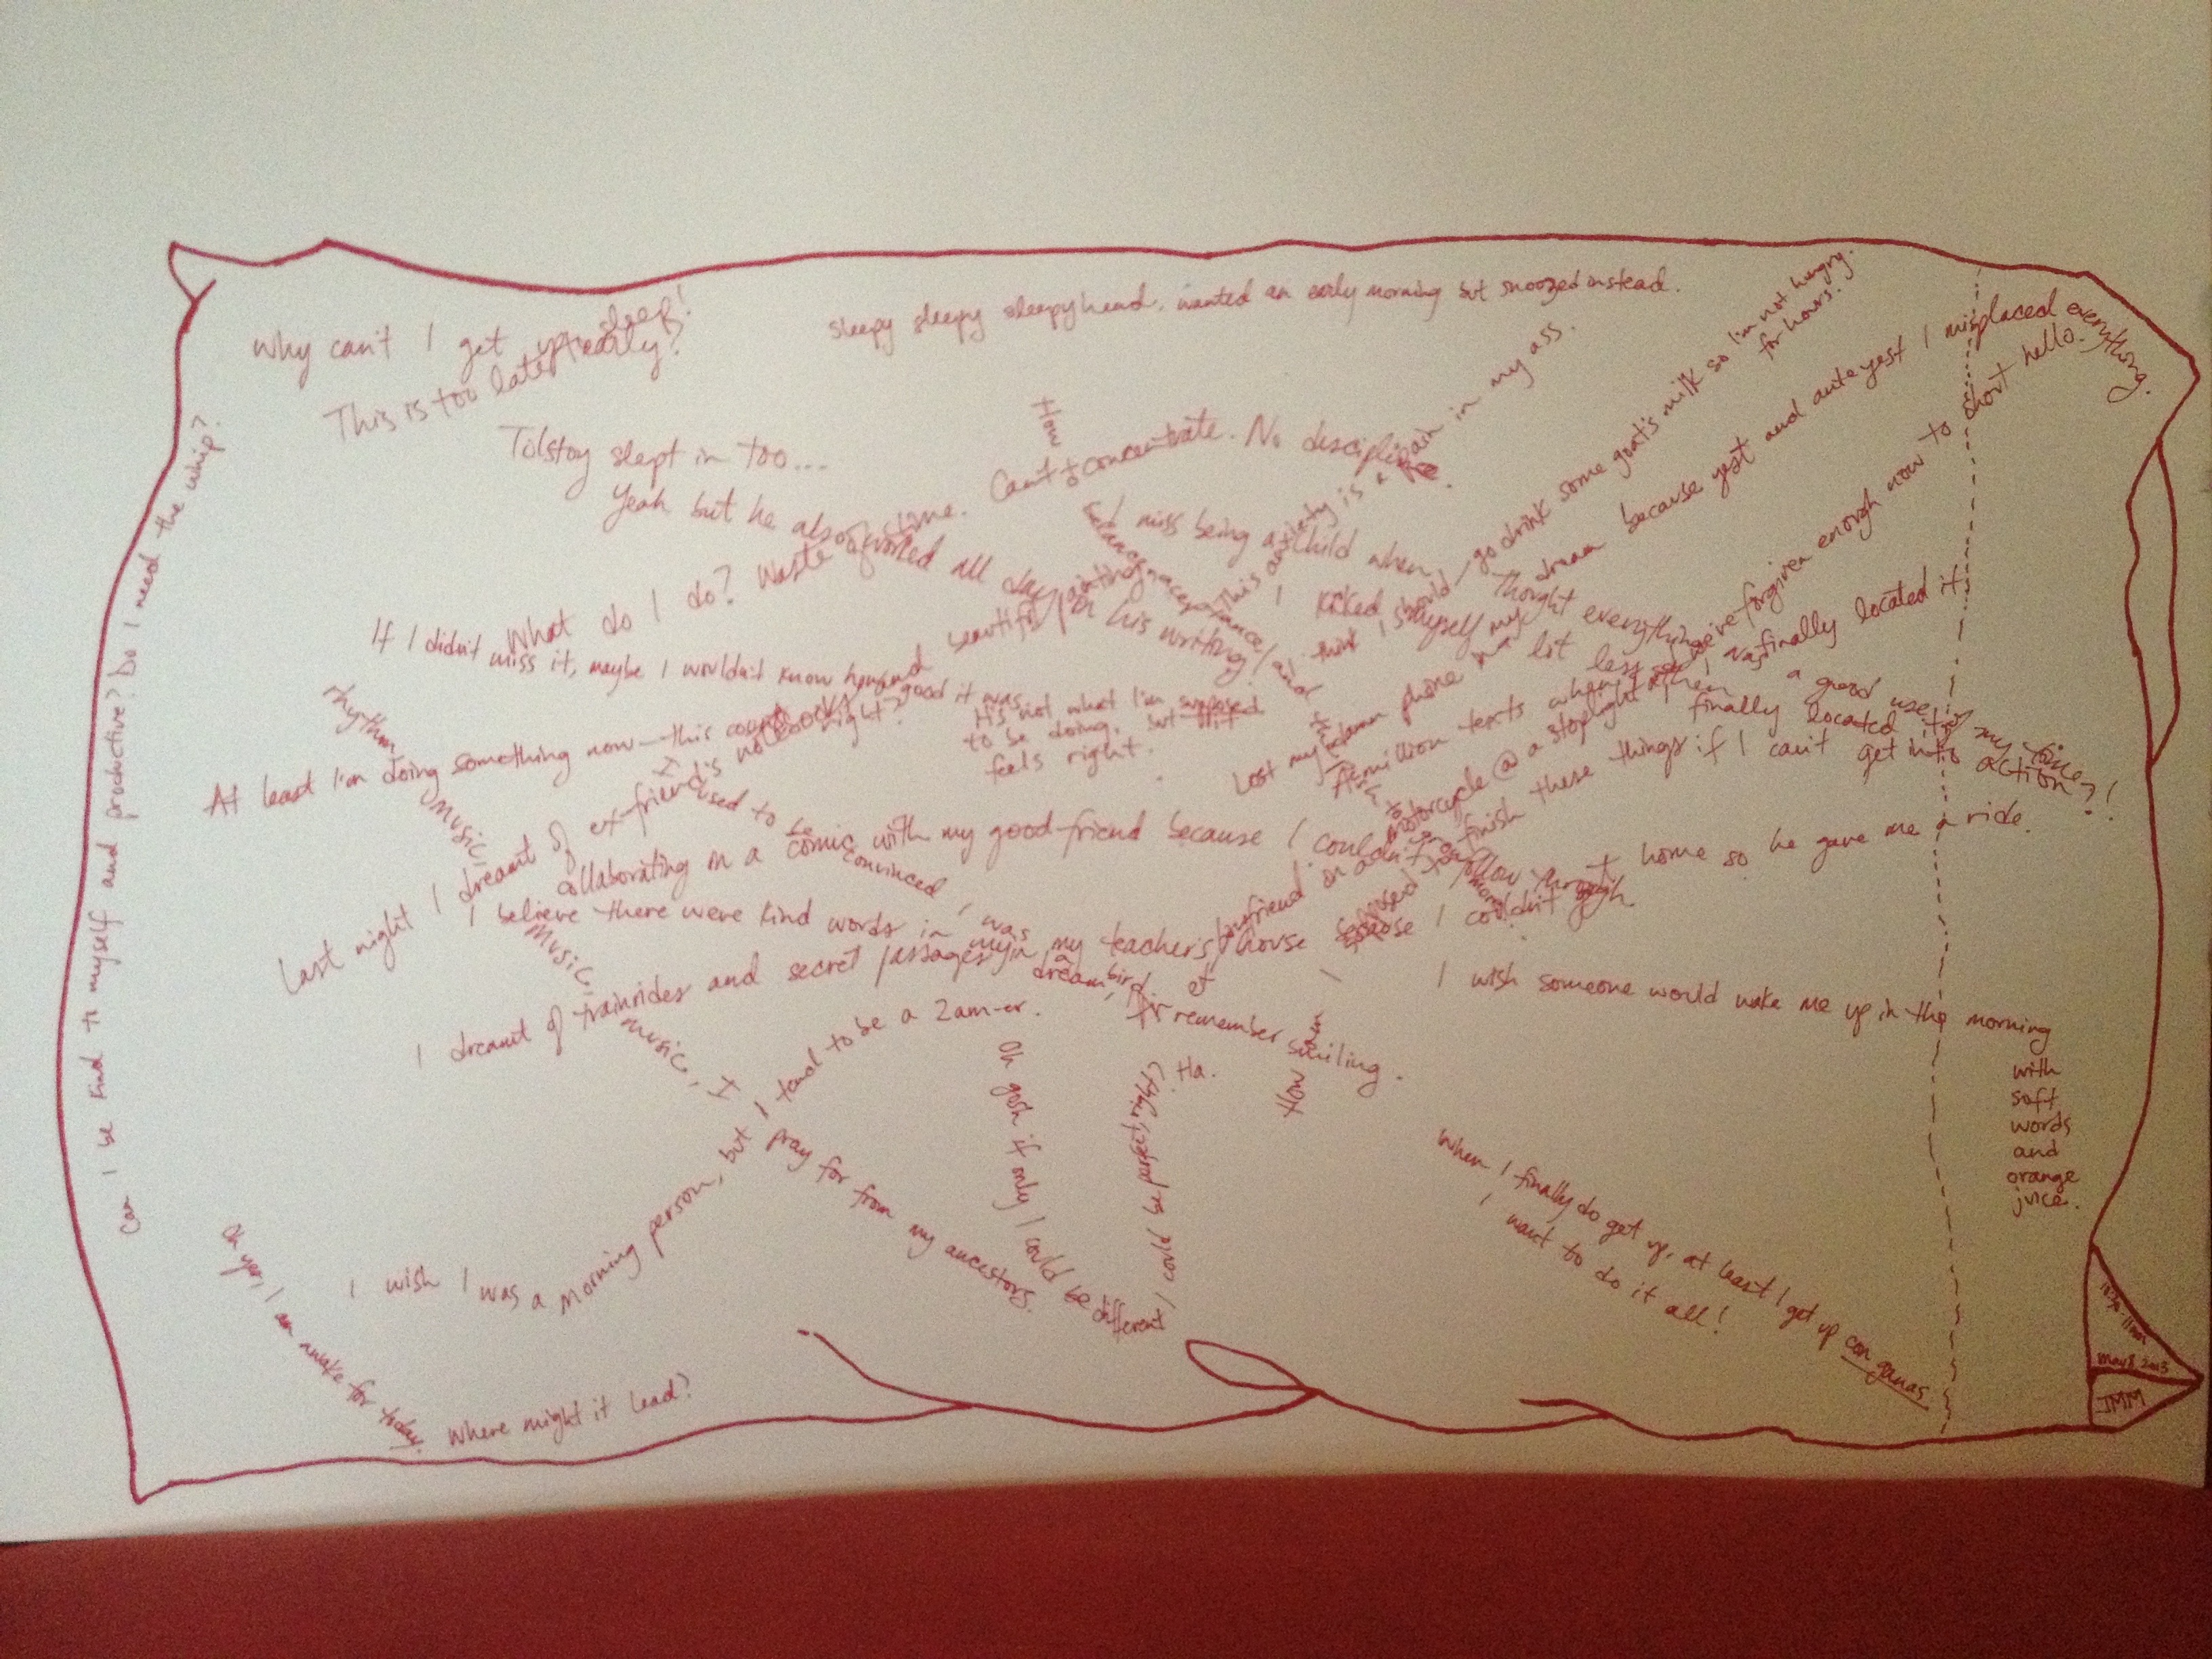 Why can't I get up early?
This is too late to sleep!
sleepy sleepy sleepyhead, wanted an early morning but snoozed instead.
Tolstoy slept in too...
Yeah but he also worked all day on his writing!
What do I do? Waste of time. Can't concentrate. No discipline.
This anxiety is a pain in my ass.
I think I should go drink some goat's milk so I'm not hungry for hours.
Lost my phone in my dream because yest and ante yest I misplaced everything.
I miss being a child when I thought everything was a good use of my time?!
I kicked myself a bit less when I finally located it.
If I didn't miss it, maybe I wouldn't know how good it was
At least I'm doing something now—this counts, right?
It's not what I'm supposed to be doing, but it feels right.
Last night I dreamt of ex-friend's notebooks and beautiful paintings
A million texts when I finally located it
finish these things if I can't get into action?!
collaborating on a comic with my good friend because I couldn't follow through.
I used to be convinced I was a bird.
I believe there were kind words in my dream, for I remember smiling.
I dreamt of trainrides and secret passages in my teacher's house
boyfriend on a motorcycle @ a stoplight
we've forgiven enough now to short hello.
home so he gave me a ride.
rhythm
music, music, music, I pray for from my ancestors.
I wish I was a morning person, but I tend to be a 2am-er.
Oh gosh if only I could be different, I could be perfect, right? Ha.
I wish someone would wake me up in the morning
with
soft
words
and
orange
juice.
When I finally do get up, at least I get up con ganas.
I want to do it all!
Oh yes, I am awake for today.
Where might it lead?
Can I be kind to myself and productive? Do I need the whip?
May 8, 2013
JMM